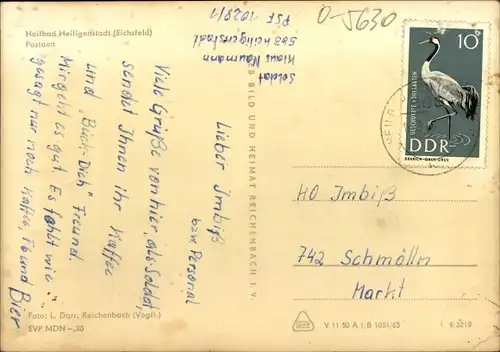 Heilbad Heiligenstadt (Eichsfeld)
Postamt
Soldat
Klaus Naumann
563 Heiligenstadt
PSF 1028/1
Lieber Imbiß
bzw. Personal
Viele Grüße von hier, als Soldat,
sendet Ihnen ihr Kaffee
und "Bück-Dich" Freund.
Mir geht es gut. Es fehlt wie
gesagt nur noch Kaffee, Ibund Bier
Foto: L. Darr, Reichenbach (Vogtl.)
EVP MDN -,20
BILD UND HEIMAT REICHENBACH I. V.
0-5630
10
GESCHÜTZTE VOGELARTEN
DDR
KRANICH · GRUS GRUS
HO Imbiß
742 Schmölln
Markt
V 11 50 A 1/B 1051/65
9.3219